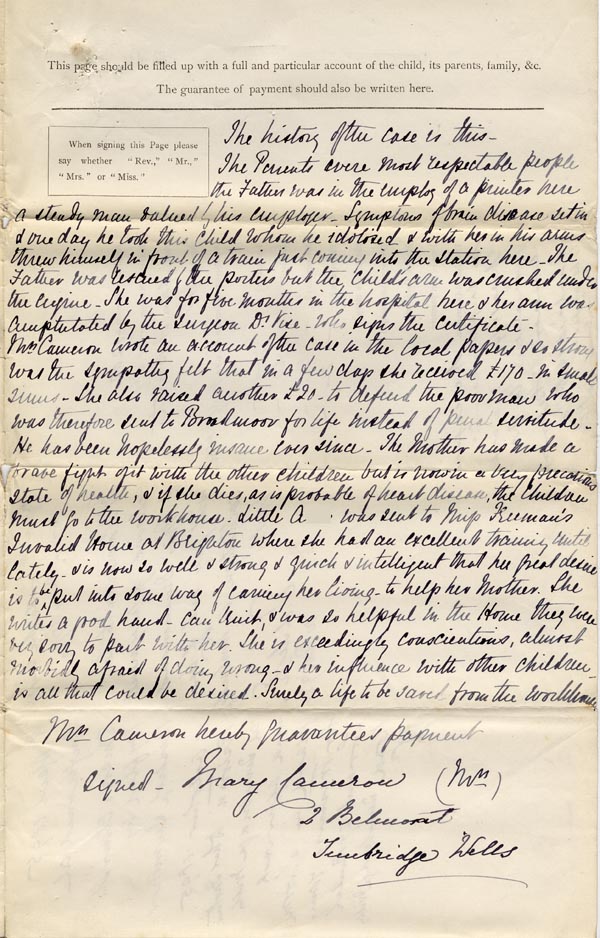 This page should be filled up with a full and particular account of the child, its parents, family, &c.
The guarantee of payment should also be written here.
When signing this Page please
say whether "Rev.," "Mr.,"
"Mrs." or "Miss."
The history of the case is this -
The Parents were most respectable people
the Father was in the employ of a printer here
a steady man valued by his employer - Symptoms of brain disease set in
& one day he took this child whom he idolised & with her in his arms
threw himself in front of a train just coming into the station here - The
Father was rescued by the porters but the child's arm was crushed under
the engine - She was for five months in the hospital here & her arm was
amputated by the surgeon Dr. Vise - who signs the certificate -
Mrs Cameron wrote an account of the case in the local papers & so strong
was the sympathy felt that in a few days she received £170 - in small
sums - She also raised another £20 - to defend the poor man who
was therefore sent to Broadmoor for life instead of penal servitude -
He has been hopelessly insane ever since - The Mother has made a
brave fight of it with the other children but is now in a very precarious
state of health, & if she dies, as is probable of heart disease, the children
must go to the workhouse - Little A was sent to Miss Freeman's
Invalid Home at Brighton where she had an excellent training until
lately - & is now so well & strong & quick & intelligent that her great desire
is to be put into some way of earning her living - to help her Mother. She
writes a good hand - can knit, & was so helpful in the Home they were
very sorry to part with her. She is exceedingly conscientious, almost
morbidly afraid of doing wrong - & her influence with other children
is all that could be desired. Surely a life to be saved from the workhouse
Mrs Cameron hereby guarantees payment
signed - Mary Cameron (Mrs)
2 Belmont
Tunbridge Wells